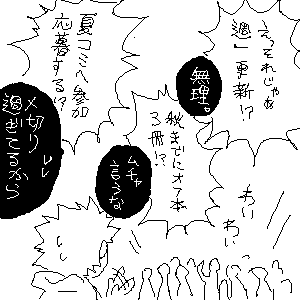 えっそれじゃぁ
週1更新!?
無理。
夏コミへ参加
応募する!?
〆切り
過ぎてるから
秋までにオフ本
3冊!?
ムチャ
言うな
わい
わい